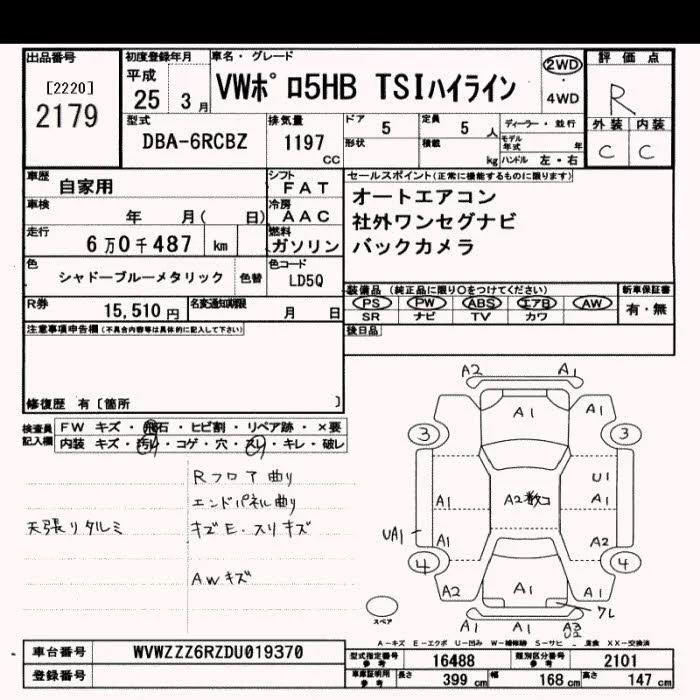 出品番号
[2220]
2179
初度登録年月
平成
25 3月
車名・グレード
VWポロ5HB TSIハイライン
2WD
・
4WD
評価点
R
外装 内装
C C
型式
DBA-6RCBZ
排気量
1197
CC
ドア 5
形状
定員 5 人
積載 kg
ディーラー・並行
モデル年式 年
ハンドル 左・右
車歴 自家用
シフト FAT
車検 年 月( 日)
冷房 AAC
走行 6万0千487 km
燃料 ガソリン
色 シャドーブルーメタリック 色替
色コード LD5Q
R券 15,510円
名変通知期限 月 日
セールスポイント(正常に機能するものに限ります)
オートエアコン
社外ワンセグナビ
バックカメラ
装備品 (純正品に限り○をつけてください)
PS PW ABS エアB AW
SR ナビ TV カワ
新車保証書
有・無
後日品
注意事項申告欄(不具合内容等は具体的に記入して下さい)
修復歴 有〔箇所 〕
検査員
記入欄
FW キズ・飛石・ヒビ割・リペア跡・×要
内装 キズ・汚れ・コゲ・穴・スレ・キレ・破レ
Rフロア曲り
エンドパネル曲り
天張りタルミ
キズE・スリキズ
AWキズ
A2 A1
A1 A1
3 3
U1
A1 A2数コ A1
UA1 A1 A2
4 4
A2 A1 A1
ワレ
A1 A1 A3
U2
スペア
A-キズ E-エクボ U-凹み W-補修跡 S-サビ XX-交換済
車台番号 WVWZZZ6RZDU019370
登録番号
型式指定番号
参考
16488
類別区分番号
参考
2101
車庫証明用
参考
長さ 399 cm 幅 168 cm 高さ 147 cm